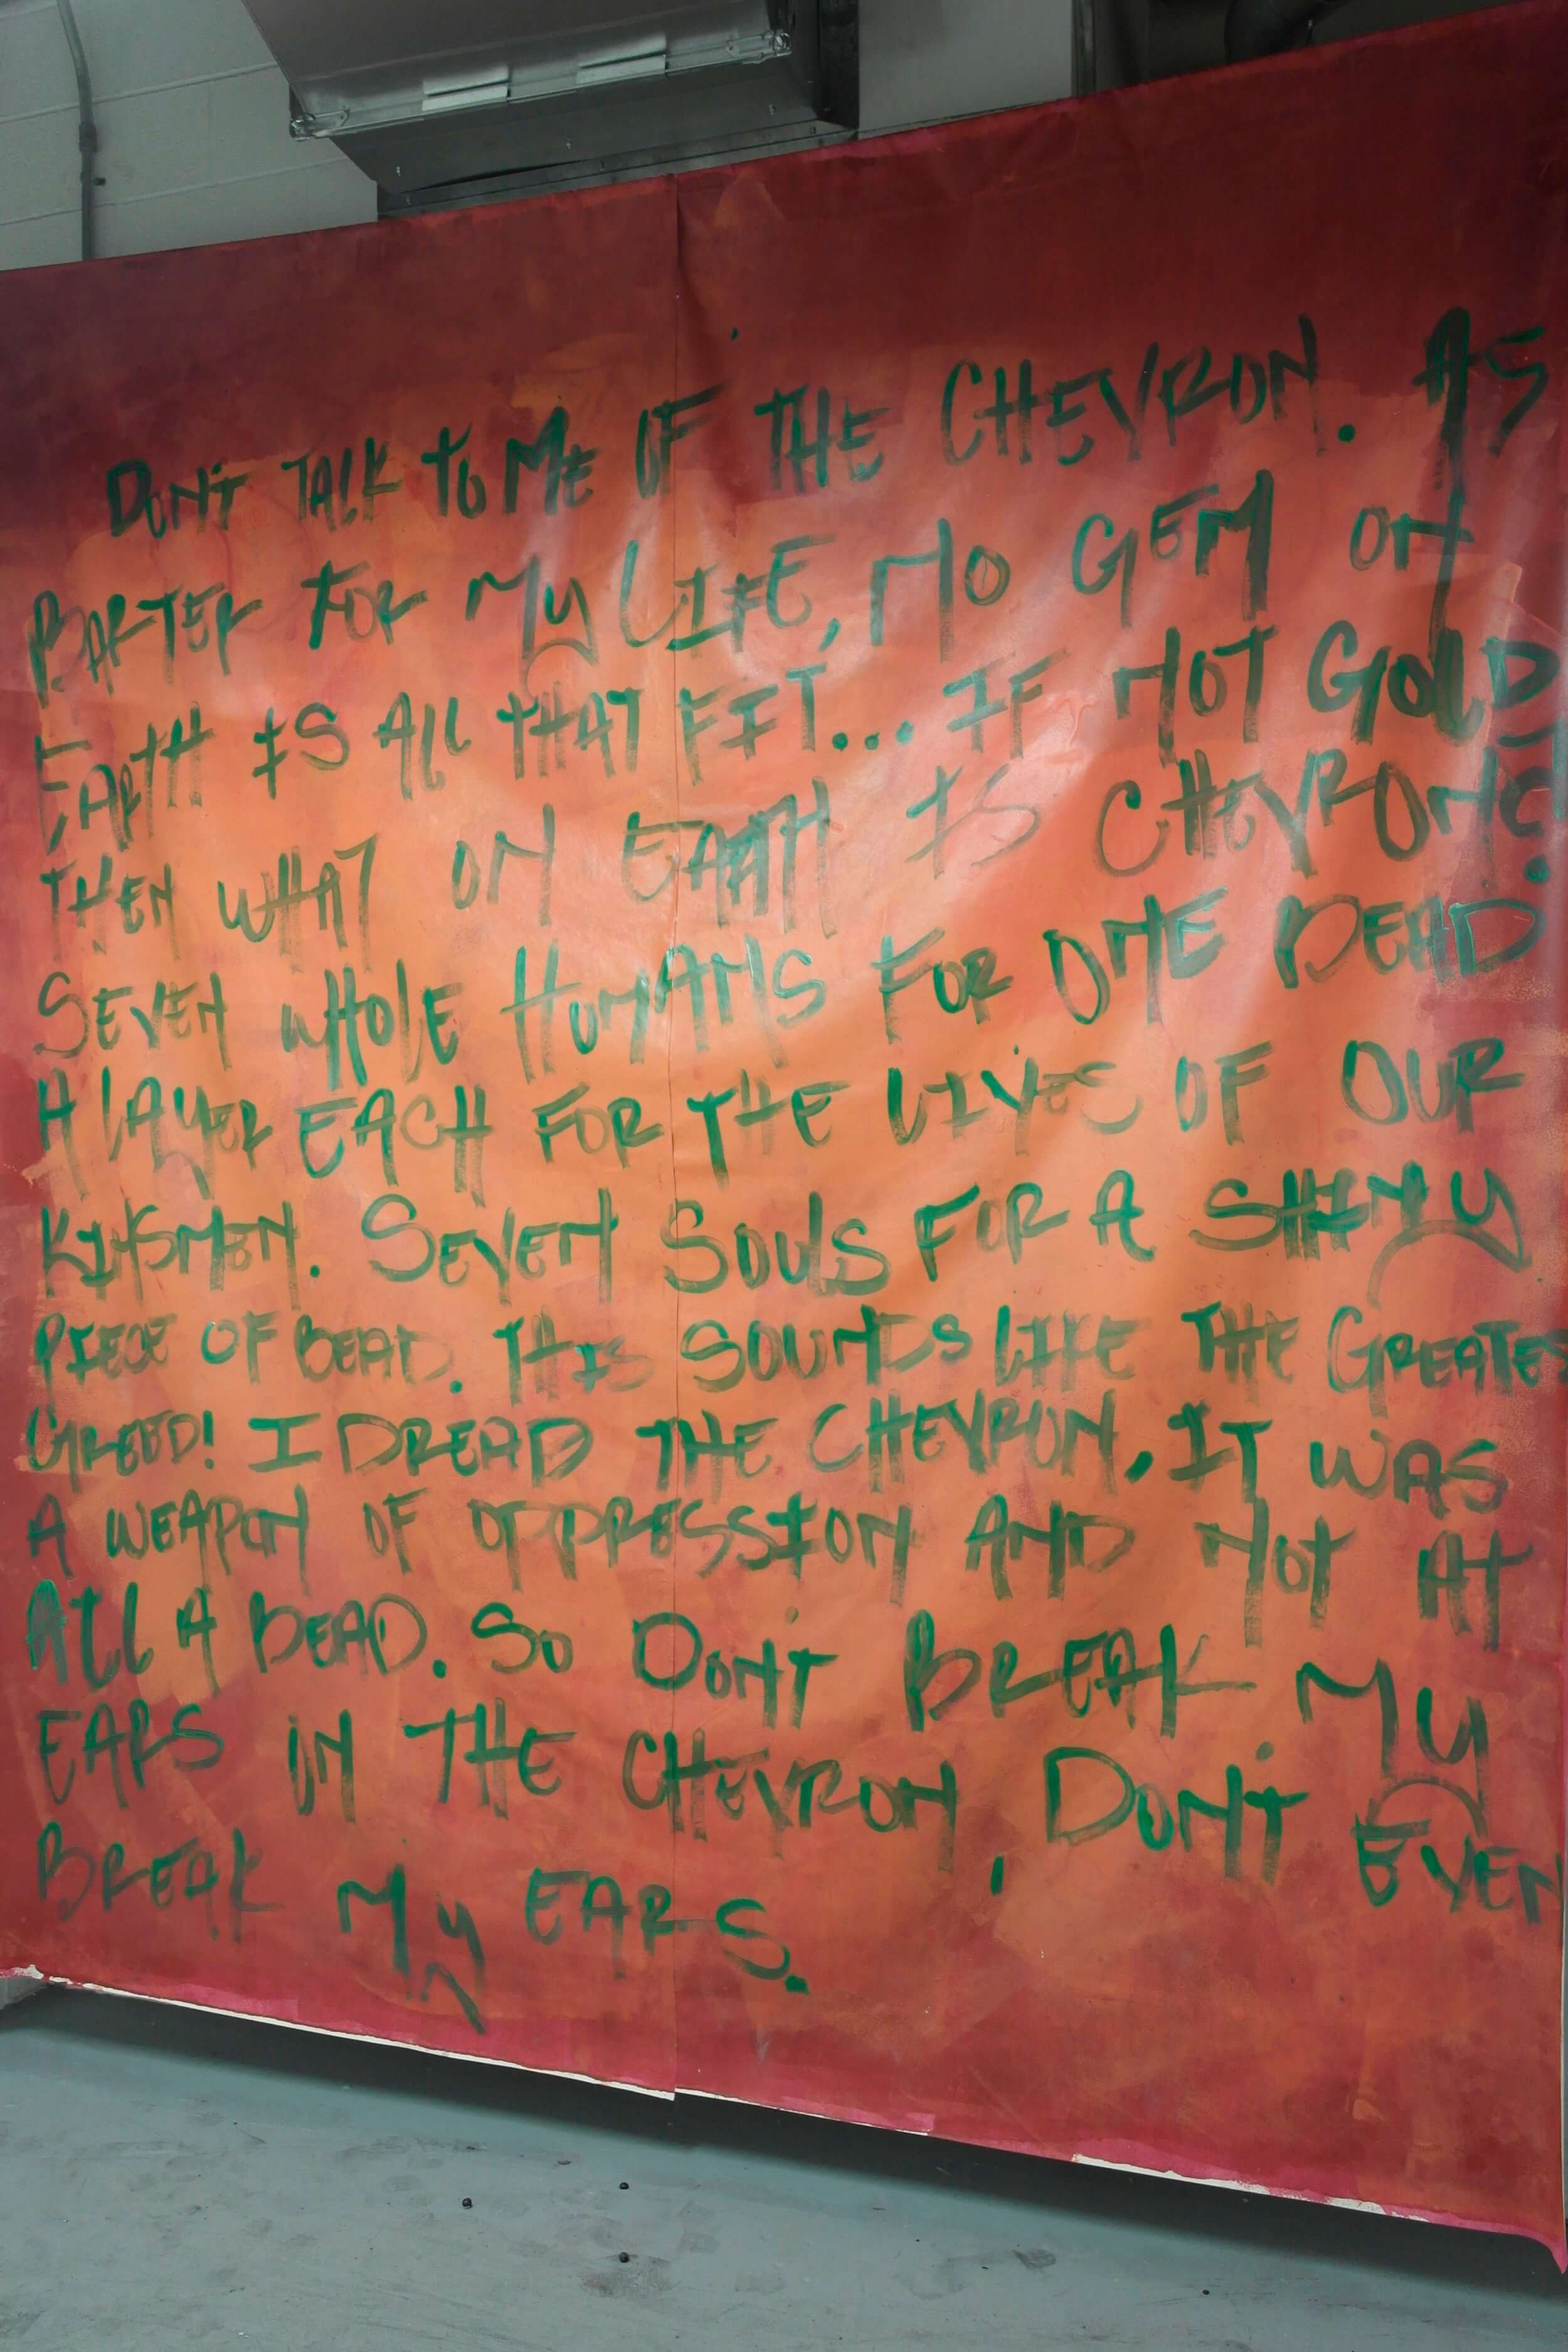 DON'T TALK TO ME OF THE CHEVRON. AS
BARTER FOR MY LIFE, NO GEM ON
EARTH IS ALL THAT FIT... IF NOT GOLD,
THEN WHAT ON EARTH IS CHEVRON?
SEVEN WHOLE HUMANS FOR ONE BEAD
A LAYER EACH FOR THE LIVES OF OUR
KINSMEN. SEVEN SOULS FOR A SHINY
PIECE OF BEAD. THIS SOUNDS LIKE THE GREATES
GREED! I DREAD THE CHEVRON. IT WAS
A WEAPON OF OPPRESSION AND NOT AT
ALL A BEAD. SO DON'T BREAK MY
EARS IN THE CHEVRON, DON'T EVEN
BREAK MY EARS.